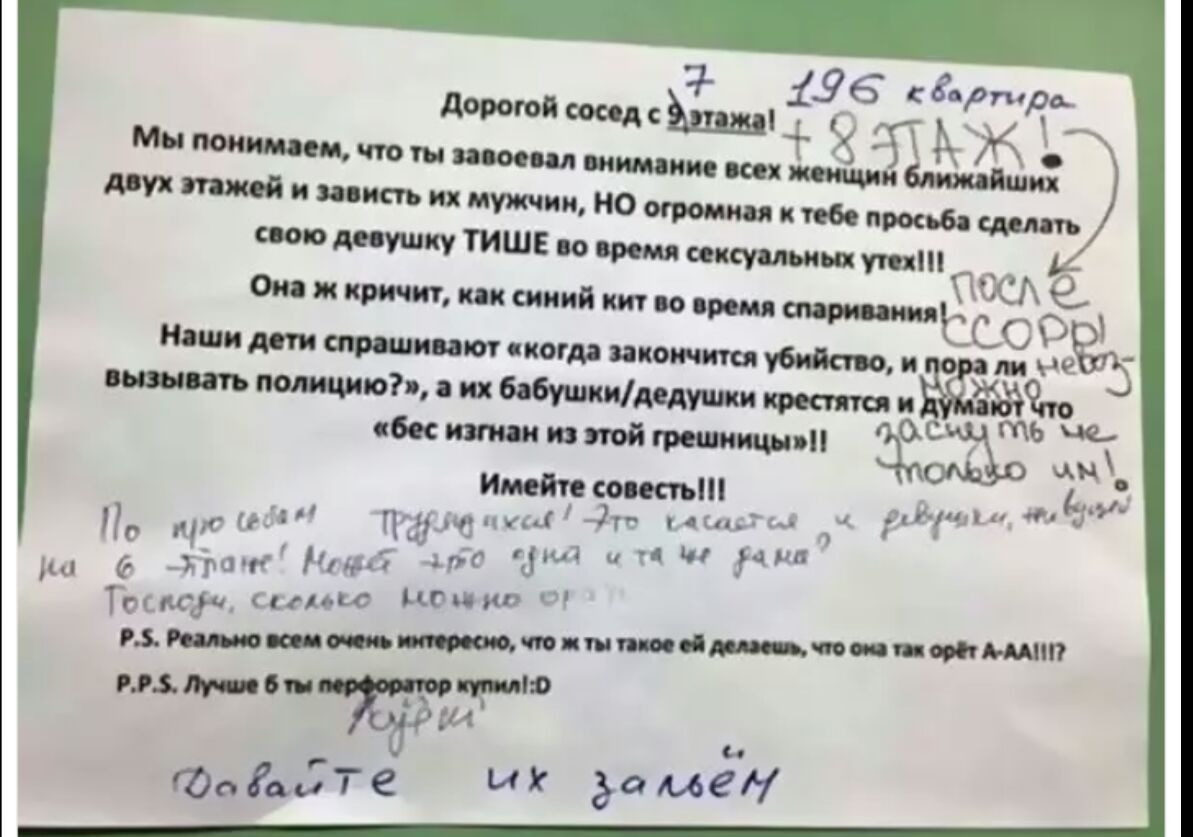 7 196 квартира
Дорогой сосед с 9 этажа!
+ 8 ЭТАЖ!
Мы понимаем, что ты завоевал внимание всех женщин ближайших
двух этажей и зависть их мужчин, НО огромная к тебе просьба сделать
свою девушку ТИШЕ во время сексуальных утех!!!
Она ж кричит, как синий кит во время спаривания!
Наши дети спрашивают «когда закончится убийство, и пора ли
вызывать полицию?», а их бабушки/дедушки крестятся и думают что
«бес изгнан из этой грешницы»!!
Имейте совесть!!!
ПОСЛЕ
ССОРЫ
невоз-
можно
заснуть не
только им!
По просьбам трудящихся! Это касается и девушки, живущей
на 6 этаже! Может это одна и та же дама?
Господи, сколько можно
P.S. Реально всем очень интересно, что ж ты такое ей делаешь, что она так орёт А-АА!!!?
P.P.S. Лучше б ты перфоратор купил!:D
Давайте их зальём